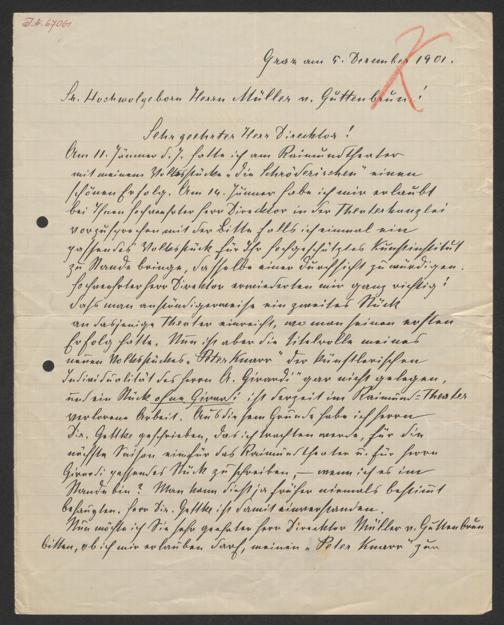 I.N. 67061
K
Graz am 5. Dezember 1901.
Sr. Hochwolgeborn Herrn Müller v. Guttenbrun!
Sehr geehrter Herr Direcktor!
Am 11. Jänner d. J. hatte ich am Raimundtheater
mit meinem Volksstücke „die Schröderischen" einen
schönen Erfolg. Am 14. Jänner habe ich mir erlaubt
bei Ihnen hochverehrter Herr Direcktor in der Theaterkanzlei
vorzusprechen mit der Bitte falls ich einmal ein
passendes Volksstück für Ihr hochgeschätztes Kunstinstitut
zu Stande bringe, dasselbe einer Durchsicht zu würdigen.
Hochverehrter Herr Direcktor erwiederten mir ganz richtig!
dass man anständigerweise ein zweites Stück
an dasjenige Theater einreicht, wo man seinen ersten
Erfolg hatte. Nun ist aber die Titelrolle meines
neuen Volksstückes „Peter Knarr" der künstlerischen
Individualität des Herrn A. Girardi gar nicht gelegen,
und ein Stück ohne Girardi ist derzeit im Raimund-Theater
verlorene Arbeit. Aus diesem Grunde habe ich Herrn
Dir. Gettke geschrieben, das ich trachten werde, für die
nächste Saison ein für das Raimundtheater u. für Herrn
Girardi passendes Stück zu schreiben, — wenn ich es im
Stande bin? Man kann dieß ja früher niemals bestimmt
behaupten. Herr Dir. Gettke ist damit einverstanden.
Nun möchte ich Sie sehr geehrter Herr Direcktor Müller v. Guttenbrun
bitten, ob ich mir erlauben darf, meinen „Peter Knarr" zur